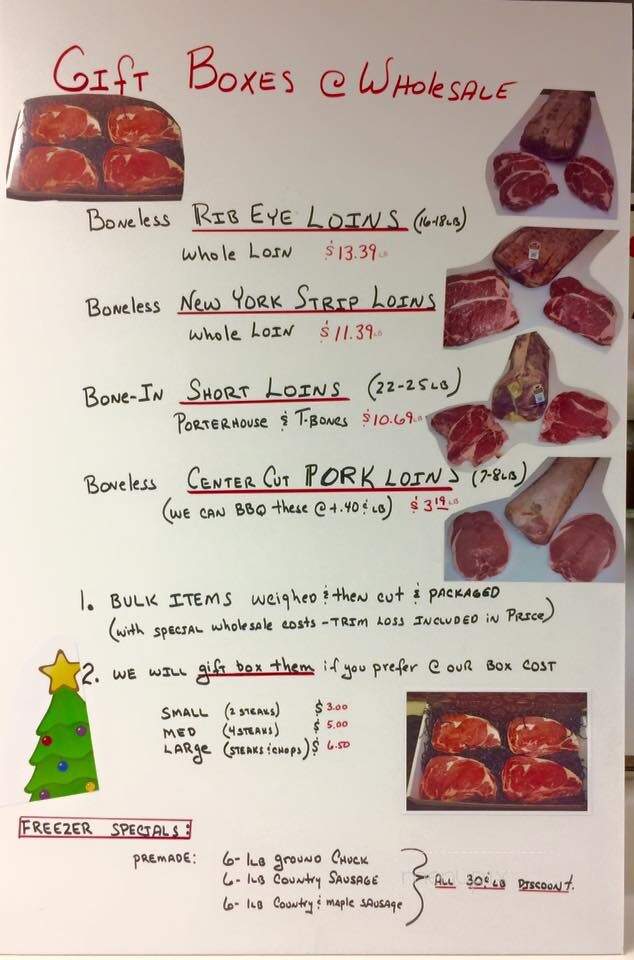 Gift Boxes @ Wholesale
Boneless Rib Eye Loins (16-18LB)
Whole Loin $13.39 LB
Boneless New York Strip Loins
Whole Loin $11.39 LB
Bone-In Short Loins (22-25LB)
Porterhouse & T-Bones $10.69 LB
Boneless Center Cut Pork Loins (7-8LB)
(We can BBQ these @ +.40¢ LB) $3.19 LB
1. Bulk Items weighed & then cut & packaged
(with special wholesale costs - Trim loss included in Price)
2. We will gift box them if you prefer @ our box cost
Small (2 steaks) $3.00
Med (4 steaks) $5.00
Large (steaks & chops) $6.50
Freezer Specials:
Premade: 6- 1LB ground Chuck
6- 1LB Country Sausage
6- 1LB Country & maple sausage
All 30¢ LB Discount.